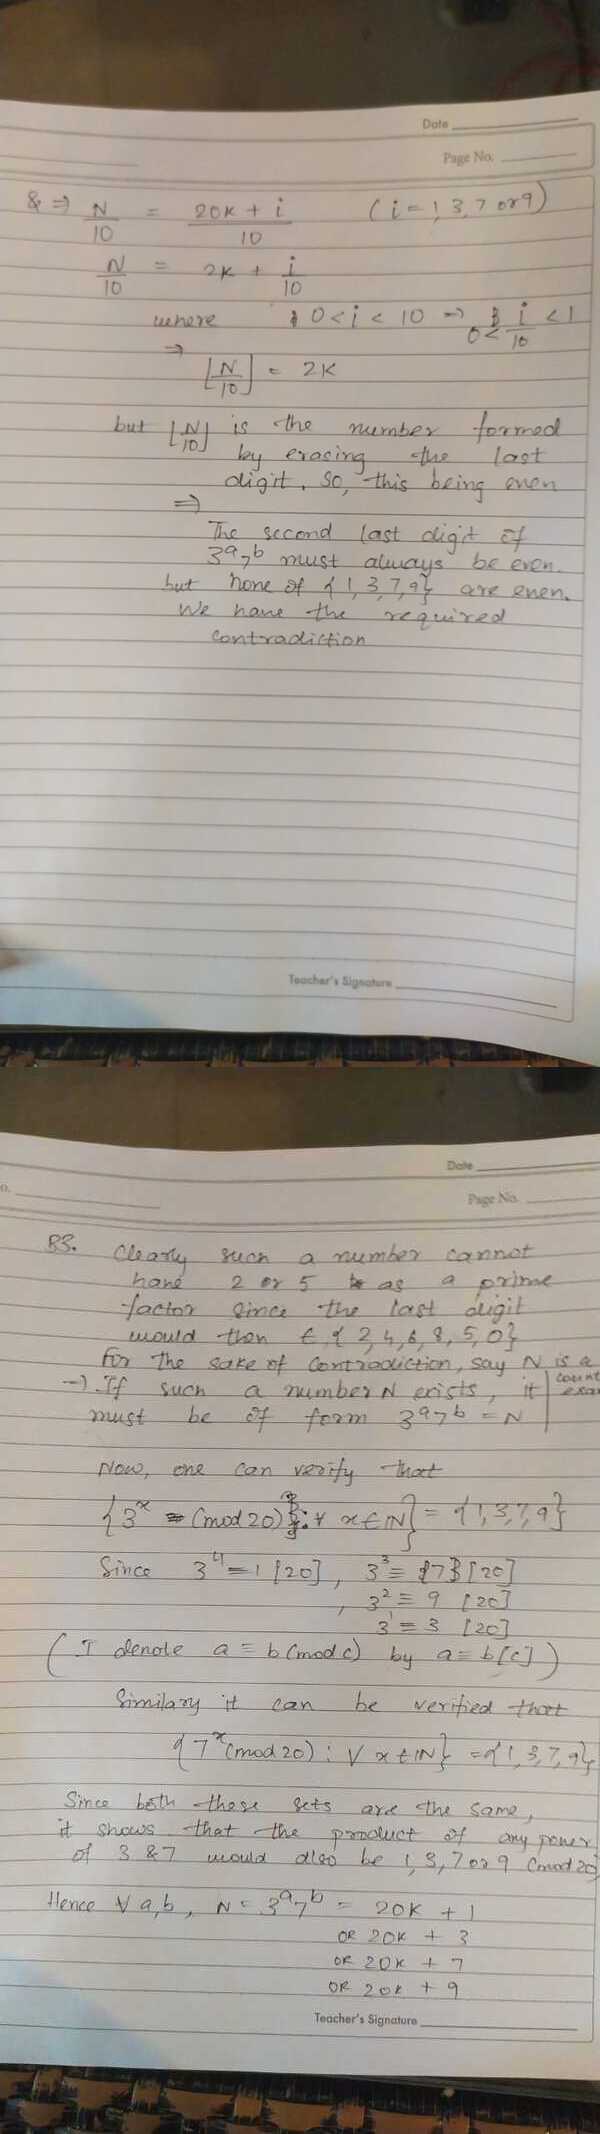 Date
Page No.
& ⇒ N/10 = (20K + i)/10 (i = 1, 3, 7 or 9)
N/10 = 2K + i/10
where 0 < i < 10 ⇒ 0 < i/10 < 1
⇒
⌊N/10⌋ = 2K
but ⌊N/10⌋ is the number formed
by erasing the last
digit. So, this being even
⇒
The second last digit of
3^a 7^b must always be even.
but none of {1, 3, 7, 9} are even.
We have the required
contradiction
Teacher's Signature
Date
o.
Page No.
B3. Clearly such a number cannot
have 2 or 5 as a prime
factor since the last digit
would then ∈ {2, 4, 6, 8, 5, 0}
For the sake of contradiction, say N is a
count
→ If such a number N exists, it
exa
must be of form 3^a 7^b = N
Now, one can verify that
{3^x (mod 20) : ∀ x ∈ IN} = {1, 3, 7, 9}
Since 3^4 = 1 [20], 3^3 ≡ {7} [20]
, 3^2 ≡ 9 [20]
3^1 ≡ 3 [20]
(I denote a ≡ b (mod c) by a ≡ b [c])
Similary it can be verified that
{7^x (mod 20) : ∀ x ∈ IN} = {1, 3, 7, 9}
Since both these sets are the same,
it shows that the product of any power
of 3 & 7 would also be 1, 3, 7 or 9 (mod 20)
Hence ∀ a, b, N = 3^a 7^b = 20K + 1
OR 20K + 3
OR 20K + 7
OR 20K + 9
Teacher's Signature